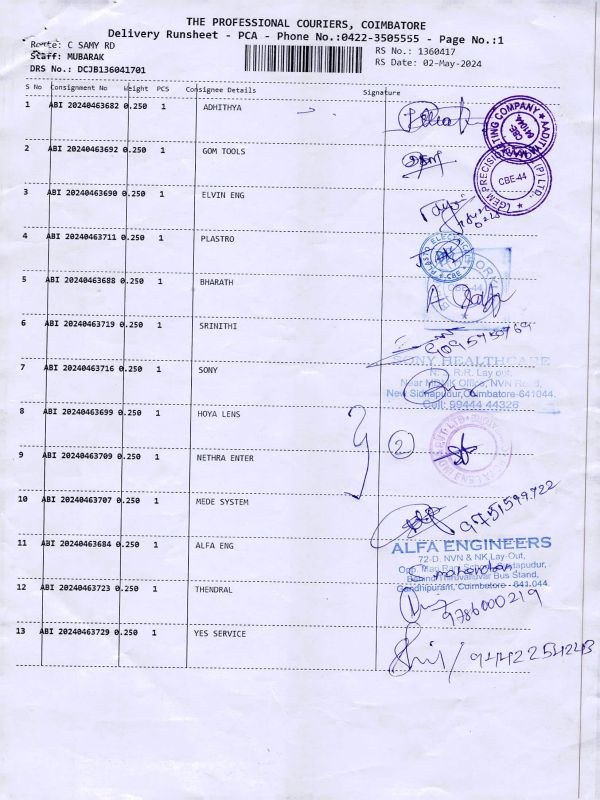 THE PROFESSIONAL COURIERS, COIMBATORE
Delivery Runsheet - PCA - Phone No.:0422-3505555 - Page No.:1
Route: C SAMY RD
RS No.: 1360417
Staff: MUBARAK
RS Date: 02-May-2024
DRS No.: DCJB136041701
S No Consignment No Weight PCS Consignee Details Signature
1 ABI 20240463682 0.250 1 ADHITHYA
2 ABI 20240463692 0.250 1 GOM TOOLS
3 ABI 20240463690 0.250 1 ELVIN ENG
4 ABI 20240463711 0.250 1 PLASTRO
5 ABI 20240463688 0.250 1 BHARATH
6 ABI 20240463719 0.250 1 SRINITHI
7 ABI 20240463716 0.250 1 SONY
8 ABI 20240463699 0.250 1 HOYA LENS
9 ABI 20240463709 0.250 1 NETHRA ENTER
10 ABI 20240463707 0.250 1 MEDE SYSTEM
11 ABI 20240463684 0.250 1 ALFA ENG
12 ABI 20240463723 0.250 1 THENDRAL
13 ABI 20240463729 0.250 1 YES SERVICE
CBE-44
SONY HEALTHCARE
N. S.R.R. Lay out,
Office, NVN Road,
New Sidhapudur, Coimbatore-641044.
Cell: 99444 44326
2
9751599722
ALFA ENGINEERS
72-D, NVN & NK Lay-Out,
Behind Thiruvalluvar Bus Stand,
Gandhipuram, Coimbatore - 641 044.
9786000219
9442254243